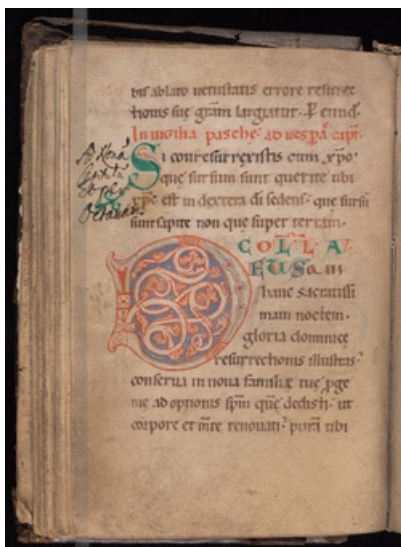 bis ablato uetustatis errore resurrec
tionis suę grām largiatur. P eund.
In uigilia paschę. ad uesp̄a capit.
Si conresurrexistis cum xp̄o
que sursum sunt querite ubi
xp̄c est in dextera di sedens. que sursū
sunt sapite non que super terram.
COLLA
EUS qui
hanc sacratissi
mam noctem.
gloria dominicę
resurrectionis illustras.
conserua in noua familię tuę p̄ge
nie adoptionis sp̄m quē dedisti. ut
corpore et m̄te renouati. purā tibi
Ad Nonā
Octauam